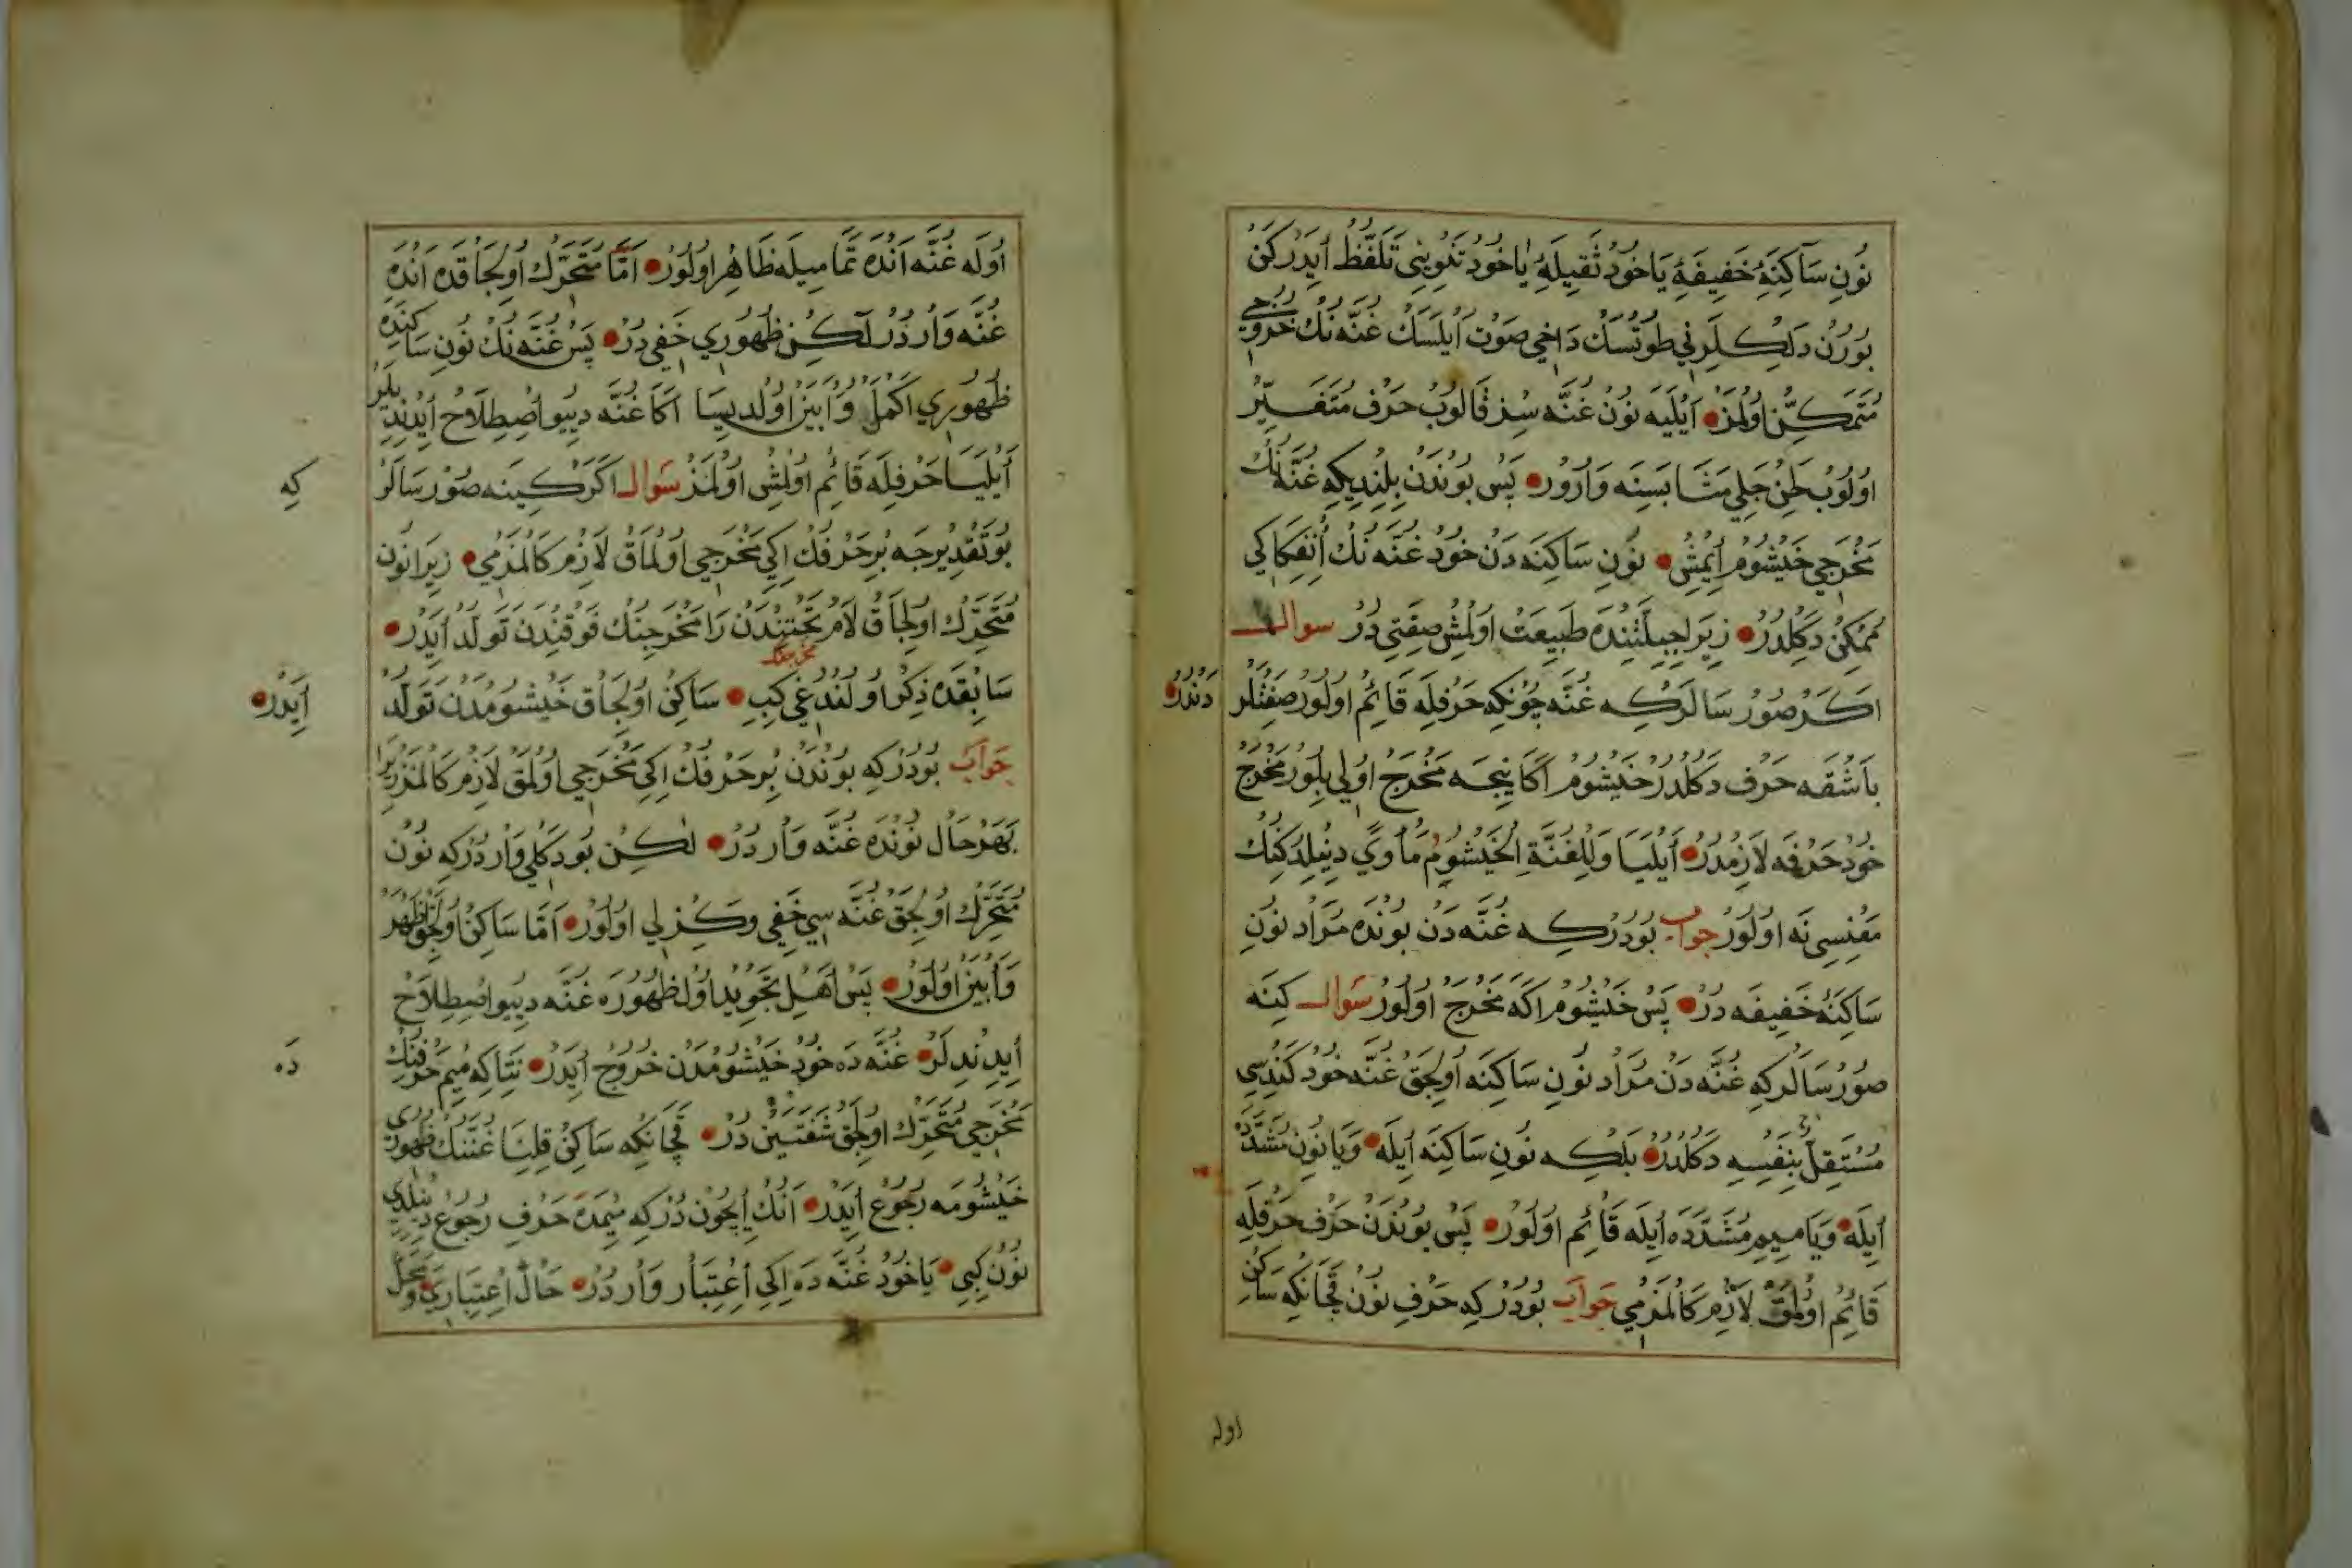 نُونِ سَاكِنَۀِ خَفِيفَۀِ يَاخُودْ ثَقِيلَۀِ يَاخُودْ تَنْوِينِى تَلَفُّظْ اِيدَرْكَنْ
بُورُنْ دَلِكْلَرِنِي طُوتْسَكْ دَاخِي صَوْتْ اَيْلَسَكْ غُنَّه نِكْ خُرُوجِي
مُتَمَكِّنْ اُولْمَزْ اَيْلَيَه نُونْ غُنَّه سِزْ قَالُوبْ حَرْف مُتَغَيِّرْ
اُولُوبْ لَحْنِ جَلِي مَثَابَسِنَه وَارُورْ پَسْ بُونْدَنْ بِلِنْدِيكِه غُنَّه نِكْ
مَخْرَجِي خَيْشُومْ اِيمِشْ نُونِ سَاكِنَه دَنْ خُودْ غُنَّه نِكْ اِنْفِكَاكِي
مُمْكِنْ دَكُلْدُرْ زِيرَا جِبِلَّتِنْدَه طَبِيعَتْ اُولْمِشْ صِفَتِي دُرْ سوال
اَكَرْ صُورْسَالَرْكِه غُنَّه چُونْكِه حَرْفِلَه قَائِمْ اُولُورْ صِفَتْلَرْ دَنْدُرْ
بَاشْقَه حَرْف دَكُلْدُرْ خَيْشُومْ اَكَا نِيجَه مَخْرَجْ اُولَه بِلُورْ مَخْرَجْ
خُودْ حَرْفَه لَازِمْدُرْ اَيْلَيَا وَلِلْغُنَّةِ الْخَيْشُومُ مَأْوًى دِينِلْدِكِنِكْ
مَعْنِسِي نَه اُولُورْ جواب بُودُرْكِه غُنَّه دَنْ بُونْدَه مُرَادْ نُونِ
سَاكِنَۀِ خَفِيفَه دُرْ پَسْ خَيْشُومْ اَكَه مَخْرَجْ اُولُورْ سَوال كِينَه
صُورْسَالَرْكِه غُنَّه دَنْ مُرَادْ نُونِ سَاكِنَه اُولِجَقْ غُنَّه خُودْ كَنْدُسِي
مُسْتَقِلّ بِنَفْسِهِ دَكُلْدُرْ بَلْكِه نُونِ سَاكِنَه اِيلَه وَيَا نُونِ مُشَدَّدَ
اِيلَه وَيَا مِيمِ مُشَدَّدَه اِيلَه قَائِمْ اُولُورْ پَسْ بُونْدَنْ حَرْف حَرْفِلَه
قَائِمْ اُولْمَقْ لَازِمْ كَالْمَزْمِي جَوَاب بُودُرْكِه حَرْفِ نُونْ قَچَانْكِه سَاكِنْ
اوله
اُولَه غُنَّه اَنْدَه تَمَامِيلَه ظَاهِرْ اُولُورْ اَمَّا مُتَحَرِّكْ اُولِجَاقْدَه اَنْدَه
غُنَّه وَارْدُرْ لٰكِنْ ظُهُورِي خَفِي دُرْ پَسْ غُنَّه نِكْ نُونِ سَاكِنْدَه
ظُهُورِي اَكْمَلْ وَاَبْيَنْ اُولْدِيسَا اَكَا غُنَّه دِييُو اصْطِلَاحْ اِيدِنْدِيلَرْ
اَيْلَيَا حَرْفِلَه قَائِمْ اُولْمِشْ اُولْمَزْ سَوال اَكَرْ كِينَه صُورْسَالَرْ كِه
بُو تَقْدِيرْجَه بِرْ حَرْفِكْ اِكِي مَخْرَجِي اُولْمَاقْ لَازِمْ كَالْمَزْمِي زِيرَا نُونْ
مُتَحَرِّكْ اُولِجَاقْ لَامْ تَحْتِنْدَنْ رَا مَخْرَجِنِكْ فَوْقِنْدَنْ تَوَلُّدْ اِيدَرْ
سَابِقْدَه ذِكْر اُولُنْدُغِي كِبِي سَاكِنْ اُولِجَاقْ خَيْشُومْدَنْ تَوَلُّدْ اِيدَرْ
جَوَاب بُودُرْكِه بُونْدَنْ بِرْ حَرْفِكْ اِكِي مَخْرَجِي اُولْمَقْ لَازِمْ كَالْمَزْ زِيرَا
بَهَرْ حَالْ نُونْدَه غُنَّه وَارْدُرْ لٰكِنْ بُو دَكْلِي وَارْدُرْكِه نُونْ
مُتَحَرِّكْ اُولِجَقْ غُنَّه سِي خَفِي وَكِزْلِي اُولُورْ اَمَّا سَاكِنْ اُولِجَقْ اَظْهَرْ
وَاَبْيَنْ اُولُورْ پَسْ اَهْلِ تَجْوِيدْ اُولْ ظُهُورَه غُنَّه دِييُو اصْطِلَاحْ
اِيدِنْدِلَرْ غُنَّه دَه خُودْ خَيْشُومْدَنْ خُرُوجْ اِيدَرْ نِتَاكِه مِيمْ حَرْفِنِكْ دَه
مَخْرَجِي مُتَحَرِّكْ اُولِجَقْ شَفَتَيْنْ دُرْ قَچَانْكِه سَاكِنْ قِلِنْسَا غُنَّنِكْ ظُهُورِي
خَيْشُومَه رُجُوعْ اِيدَرْ اَنِكْ اِيچُونْ دُرْكِه مِيمْدَه حَرْفِ رُجُوعْ دِينِلْدِي
نُونْ كِبِي يَاخُودْ غُنَّه دَه اِكِي اِعْتِبَارْ وَارْدُرْ حَالْ اِعْتِبَارِي وَمَحَلْ